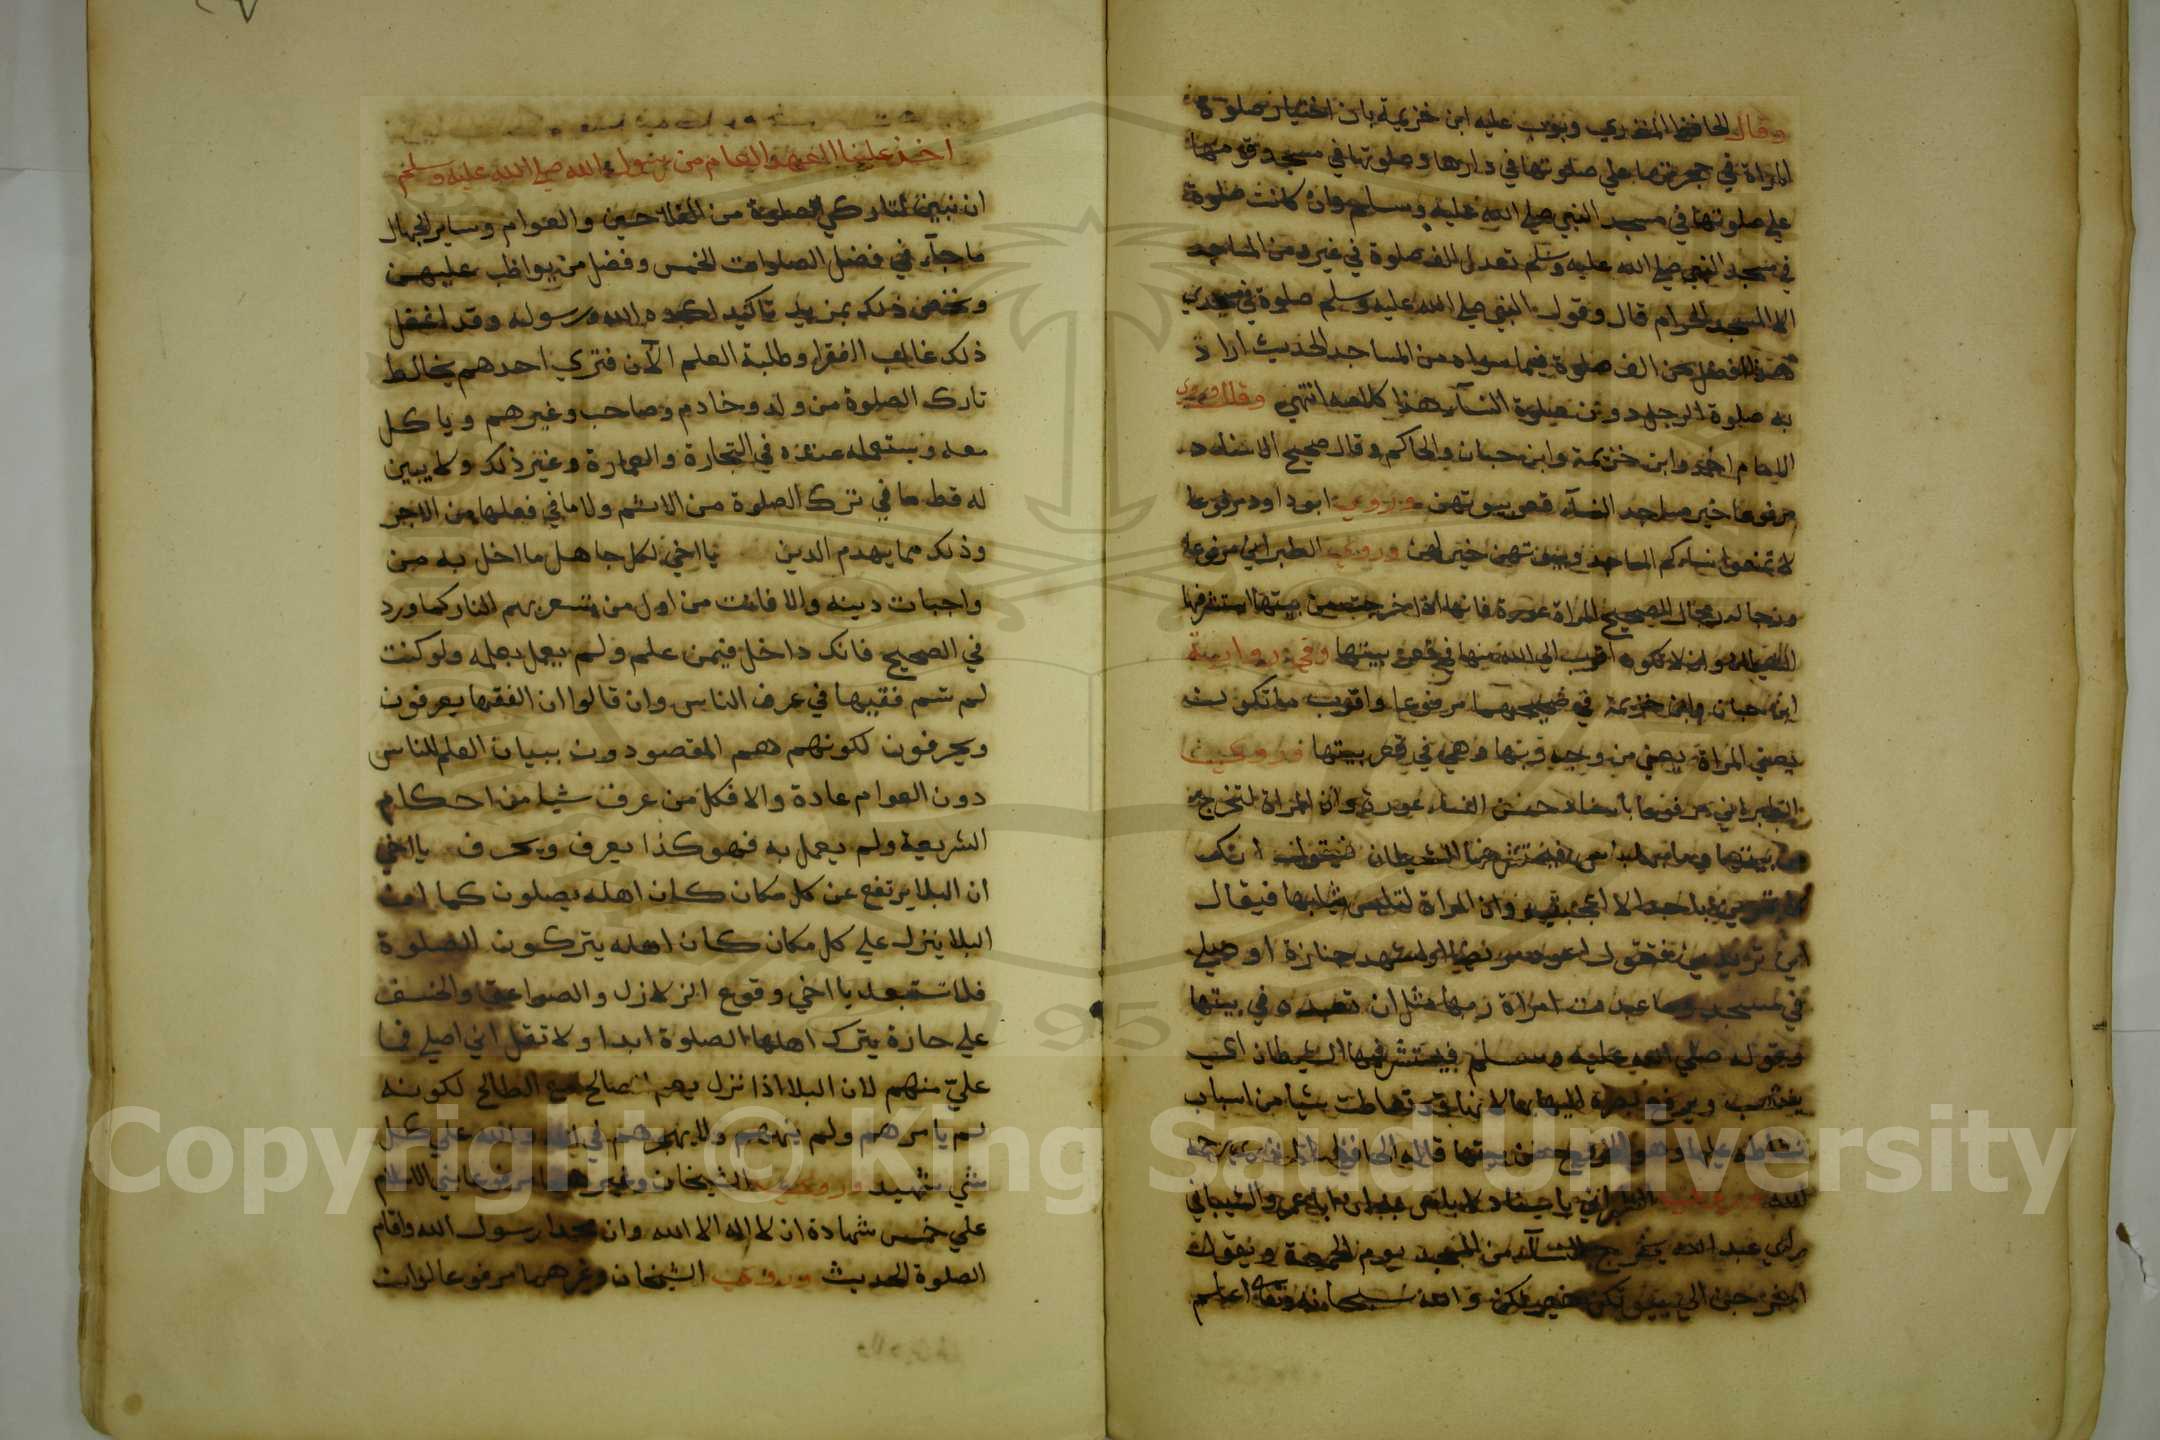 وقال الحافظ المنذري وبوب عليه ابن خزيمة باب اختيار صلوة
المراة في حجرتها علي صلوتها في دارها وصلوتها في مسجد قومها
علي صلوتها في مسجد النبي صلي الله عليه وسلم وان كانت صلوة
في مسجد النبي صلي الله عليه وسلم تعدل الف صلوة في غيره من المساجد
الا المسجد الحرام قال وقول النبي صلي الله عليه وسلم صلوة في مسجدي
هذا افضل من الف صلوة فيما سواه من المساجد الحديث اراد
به صلوة الرجل دون صلوة النسآء هذا كلامه انتهي وروي
الامام احمد وابن خزيمة وابن حبان والحاكم وقال صحيح الاسناد
مرفوعا خير مساجد النسآء قعر بيوتهن وروي ابو داود مرفوعا
لا تمنعوا نساءكم المساجد وبيوتهن خير لهن وروي الطبراني مرفوعا
ورجاله رجال الصحيح المراة عورة فانها اذا خرجت من بيتها استشرفها
الشيطان وانها لا تكون اقرب الي الله منها في قعر بيتها وفي رواية
ابن حبان وابن خزيمة في صحيحهما مرفوعا واقرب ما تكون
يعني المراة من وجه ربها وهي في قعر بيتها وروي
الطبراني مرفوعا باسناد حسن النساء عورة وان المراة لتخرج من
بيتها وما بها باس فيستشرفها الشيطان فيقول انك
لا تمرين باحد الا اعجبتيه وان المراة لتلبس ثيابها فيقال
اين تريدين فتقول اعود مريضا او اشهد جنازة او اصلي
في مسجد وما عبدت امراة ربها مثل ان تعبده في بيتها
وقوله صلي الله عليه وسلم فيستشرفها الشيطان اي
ينتصب ويرفع بصره اليها لانها قد تعاطت شيا من اسباب
تسلطه عليها وهو خروجها من بيتها قاله الحافظ المنذري رحمه
الله الطبراني باسناد لا باس به ان ابا عمرو الشيباني
راي عبد الله يخرج النسآء من المسجد يوم الجمعة ويقول
اخرجن الي بيوتكن خير لكن والله سبحانه وتعالي اعلم
اخذ علينا العهد العام من رسول الله صلي الله عليه وسلم
ان نبين لتاركي الصلوة من الفلاحين والعوام وساير الجهال
ما جآء في فضل الصلوات الخمس وفضل من يواظب عليهن
ونخص ذلك بمزيد تاكيد لكون الله ورسوله وقد اغفل
ذلك غالب الفقرا وطلبة العلم الآن فتري احدهم يخالط
تارك الصلوة من ولد وخادم وصاحب وغيرهم وياكل
معه ويستعمله عنده في التجارة والعمارة وغير ذلك ولا يبين
له قط ما في ترك الصلوة من الاثم ولا ما في فعلها من الاجر
وذلك مما يهدم الدين يا اخي لكل جاهل ما اخل به من
واجبات دينه والا فانت من اول من تسعر بهم النار كما ورد
في الصحيح فانك داخل فيمن علم ولم يعمل بعلمه ولو كنت
لم تسم فقيها في عرف الناس وان قالوا ان الفقها يعرفون
ويحرفون لكونهم هم المقصودون ببيان العلم للناس
دون العوام عادة والا فكل من عرف شيا من احكام
الشريعة ولم يعمل به فهو كذا يعرف ويحرف يا اخي
ان البلا يرتفع عن كل مكان كان اهله يصلون كما ان
البلا ينزل علي كل مكان كان اهله يتركون الصلوة
فلا تستبعد يا اخي وقوع الزلازل والصواعق والخسف
علي حارة يترك اهلها الصلوة ابدا ولا تقل اني اصلي فما
عليّ منهم لان البلا اذا نزل يعم الصالح مع الطالح لكونه
لم يامرهم ولم ينههم ولا يهجرهم في الله والله علي كل
شي شهيد وروي الشيخان وغيرهما مرفوعا بني الاسلام
علي خمس شهادة ان لا اله الا الله وان محمدا رسول الله واقام
الصلوة الحديث وروي الشيخان وغيرهما مرفوعا ارايت
Copyright © King Saud University
1957